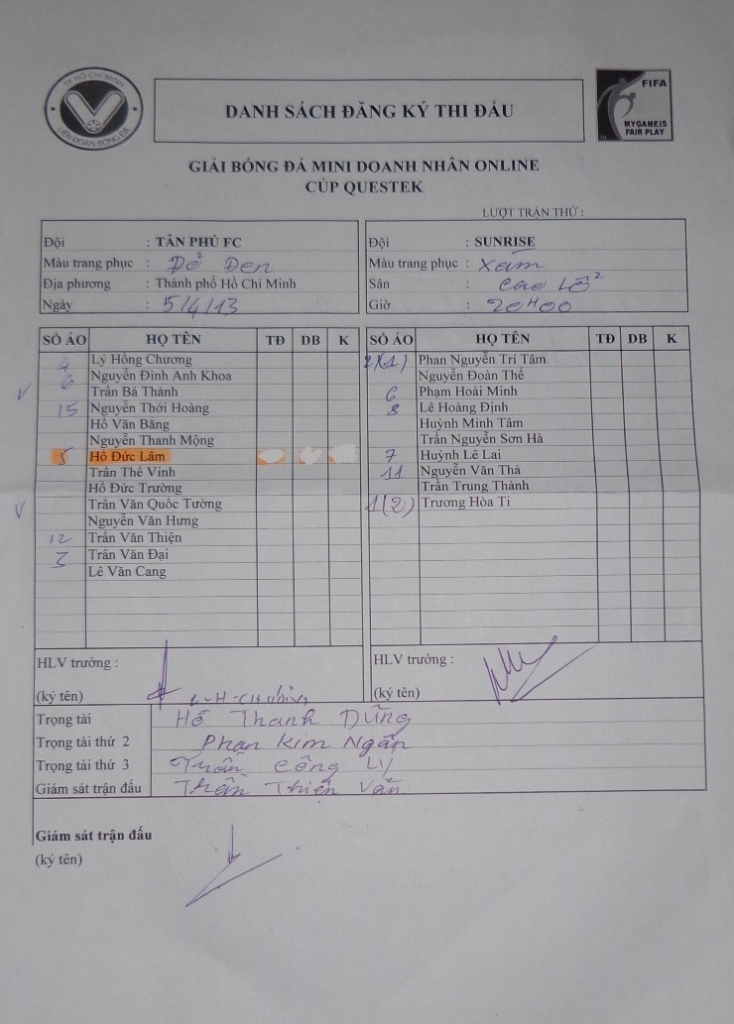 TP HỒ CHÍ MINH
LIÊN ĐOÀN BÓNG ĐÁ
FIFA
MYGAMEIS
FAIR PLAY
DANH SÁCH ĐĂNG KÝ THI ĐẤU
GIẢI BÓNG ĐÁ MINI DOANH NHÂN ONLINE
CÚP QUESTEK
LƯỢT TRẬN THỨ :
Đội : TÂN PHÚ FC
Màu trang phục : Đỏ Đen
Địa phương : Thành phố Hồ Chí Minh
Ngày : 5/4/13
Đội : SUNRISE
Màu trang phục : Xám
Sân : Cao Lỗ 2
Giờ : 20H00
SỐ ÁO HỌ TÊN TĐ DB K
4 Lý Hồng Chương
6 Nguyễn Đình Anh Khoa
Trần Bá Thành
15 Nguyễn Thới Hoàng
Hồ Văn Băng
Nguyễn Thanh Mộng
5 Hồ Đức Lâm
Trần Thế Vinh
Hồ Đức Trường
Trần Văn Quốc Tường
Nguyễn Văn Hưng
12 Trần Văn Thiện
7 Trần Văn Đại
Lê Văn Cang
SỐ ÁO HỌ TÊN TĐ DB K
2(1) Phan Nguyễn Trí Tâm
Nguyễn Đoàn Thể
6 Phạm Hoài Minh
8 Lê Hoàng Định
Huỳnh Minh Tâm
Trần Nguyễn Sơn Hà
7 Huỳnh Lê Lai
11 Nguyễn Văn Thả
Trần Trung Thành
1(2) Trương Hòa Ti
HLV trưởng :
(ký tên)
HLV trưởng :
(ký tên)
Trọng tài Hồ Thanh Dũng
Trọng tài thứ 2 Phan Kim Ngân
Trọng tài thứ 3 Trần Công Lý
Giám sát trận đấu Trần Thiên Vấn
Giám sát trận đấu
(ký tên)